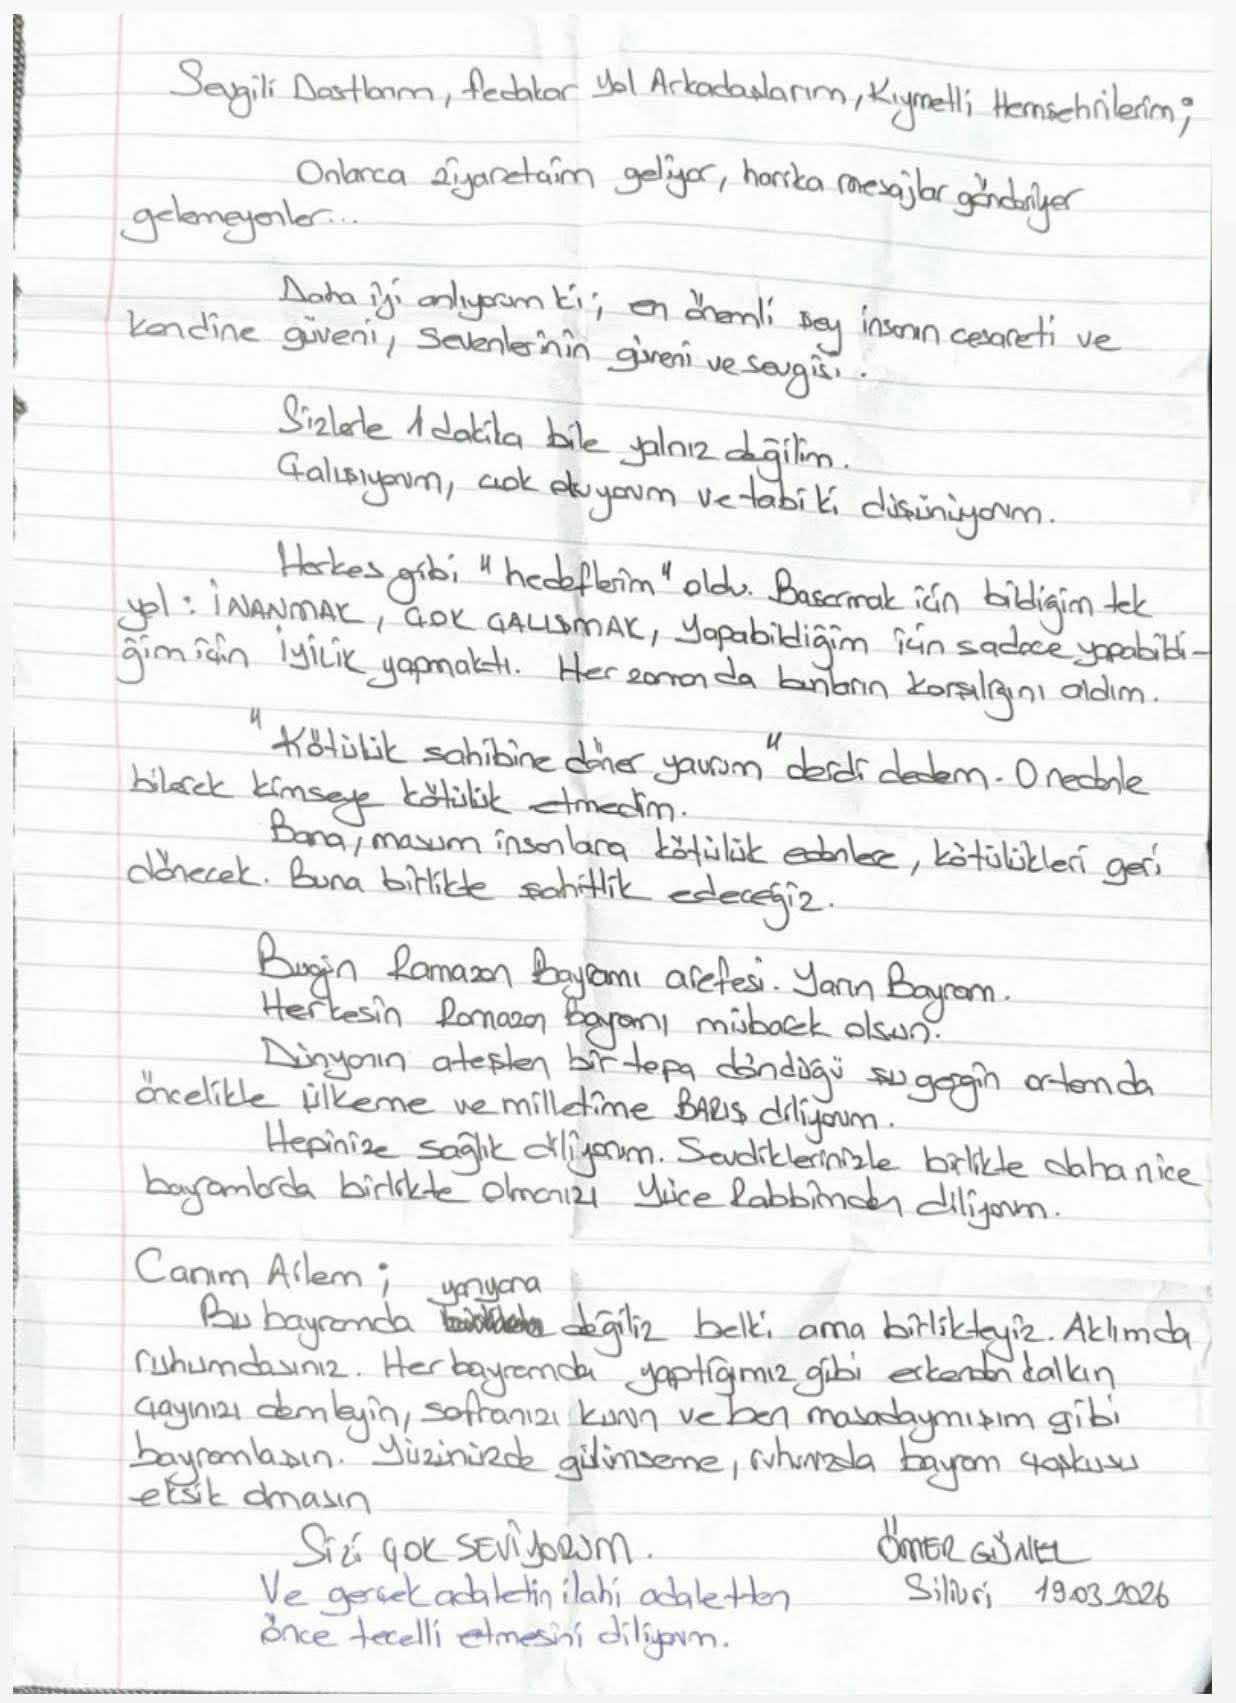 Sevgili Dostlarım, fedakar yol Arkadaşlarım, Kıymetli Hemşehrilerim;
Onlarca ziyaretçim geliyor, harika mesajlar gönderiyer
gelemeyenler...
Daha iyi anlıyorum ki; en önemli şey insanın cesareti ve
kendine güveni, sevenlerinin güveni ve sevgisi.
Sizlerle 1 dakika bile yalnız değilim.
Çalışıyorum, çok okuyorum ve tabi ki düşünüyorum.
Herkes gibi "hedeflerim" oldu. Başarmak için bildiğim tek
yol: İNANMAK, ÇOK ÇALIŞMAK, yapabildiğim için sadece yapabildi-
ğim için İYİLİK yapmaktı. Her zaman da bunların karşılığını aldım.
"Kötülük sahibine döner yavrum" derdi dedem. O nedenle
bilerek kimseye kötülük etmedim.
Bana, masum insanlara kötülük edenlere, kötülükleri geri
dönecek. Buna birlikte şahitlik edeceğiz.
Bugün Ramazan Bayramı arefesi. Yarın Bayram.
Herkesin Ramazan Bayramı mübarek olsun.
Dünyanın ateşten bir topa döndüğü şu gergin ortamda
öncelikle ülkeme ve milletime BARIŞ diliyorum.
Hepinize sağlık diliyorum. Sevdiklerinizle birlikte daha nice
bayramlarda birlikte olmanızı Yüce Rabbimden diliyorum.
Canım Ailem;
Bu bayramda yanyana değiliz belki ama birlikteyiz. Aklımda
ruhumdasınız. Her bayramda yaptığımız gibi erkenden kalkın
çayınızı demleyin, sofranızı kurun ve ben masadaymışım gibi
bayramlaşın. Yüzünüzde gülümseme, ruhunuzda bayram coşkusu
eksik olmasın
Sizi ÇOK SEVİYORUM.
ÖMER GÜNEL
Ve gerçek adaletin ilahi adaletten
Silivri 19.03.2026
önce tecelli etmesini diliyorum.